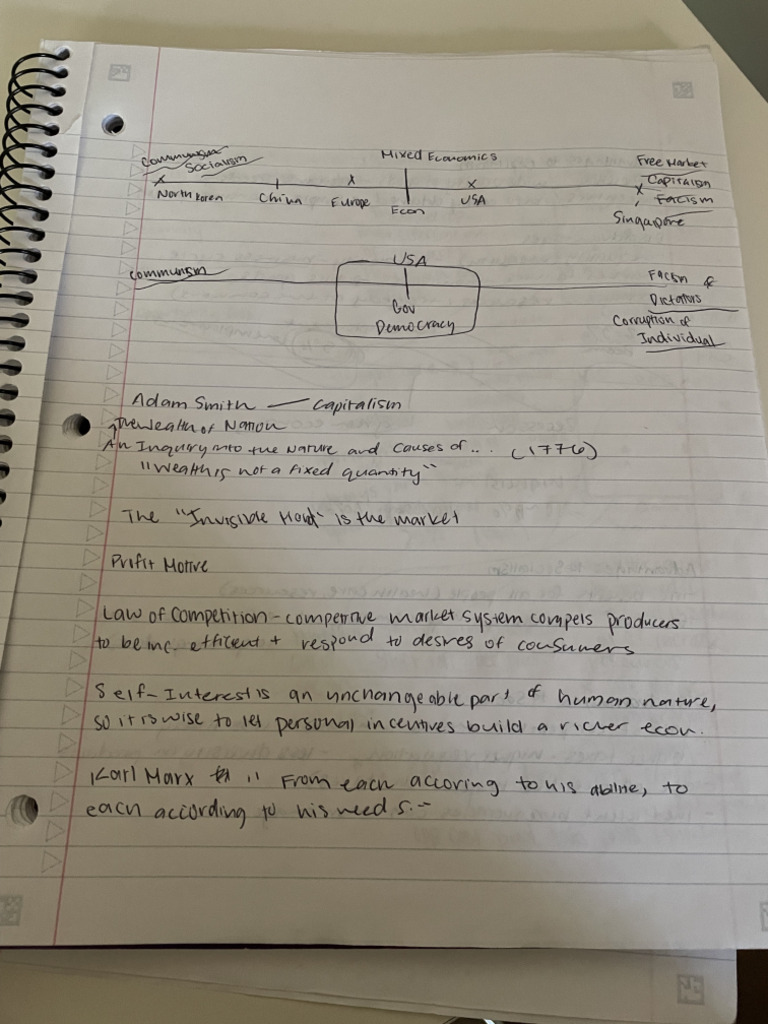 Communism
Socialism
Mixed Economics
Free Market
Capitalism
Facism
North Korea
China
Europe
Econ
USA
Singapore
Communism
USA
Gov
Democracy
Facism &
Dictators
Corruption of
Individual
Adam Smith — Capitalism
The Wealth of Nation
An Inquiry into the Nature and Causes of... (1776)
"Wealth is not a fixed quantity"
The "Invisible Hand" is the market
Profit Motive
Law of Competition - competitive market system compels producers
to be inc. efficent + respond to desires of consumers
Self-Interest is an unchangeable part of human nature,
so it is wise to let personal incentives build a richer econ.
Karl Marx " From each accoring to his abilitie, to
each according to his needs."